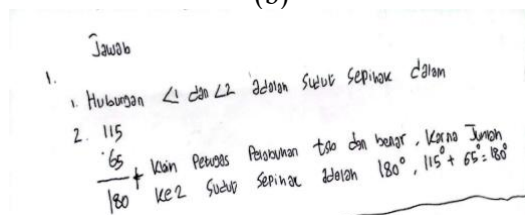 (b)
Jawab
1.
1. Hubungan ∠1 dan ∠2 adalah sudut sepihak dalam
2. 115
65
180 + klaim Petugas Pelabuhan dan benar, karna Jumlah
ke2 sudut sepihak adalah 180°, 115° + 65° = 180°